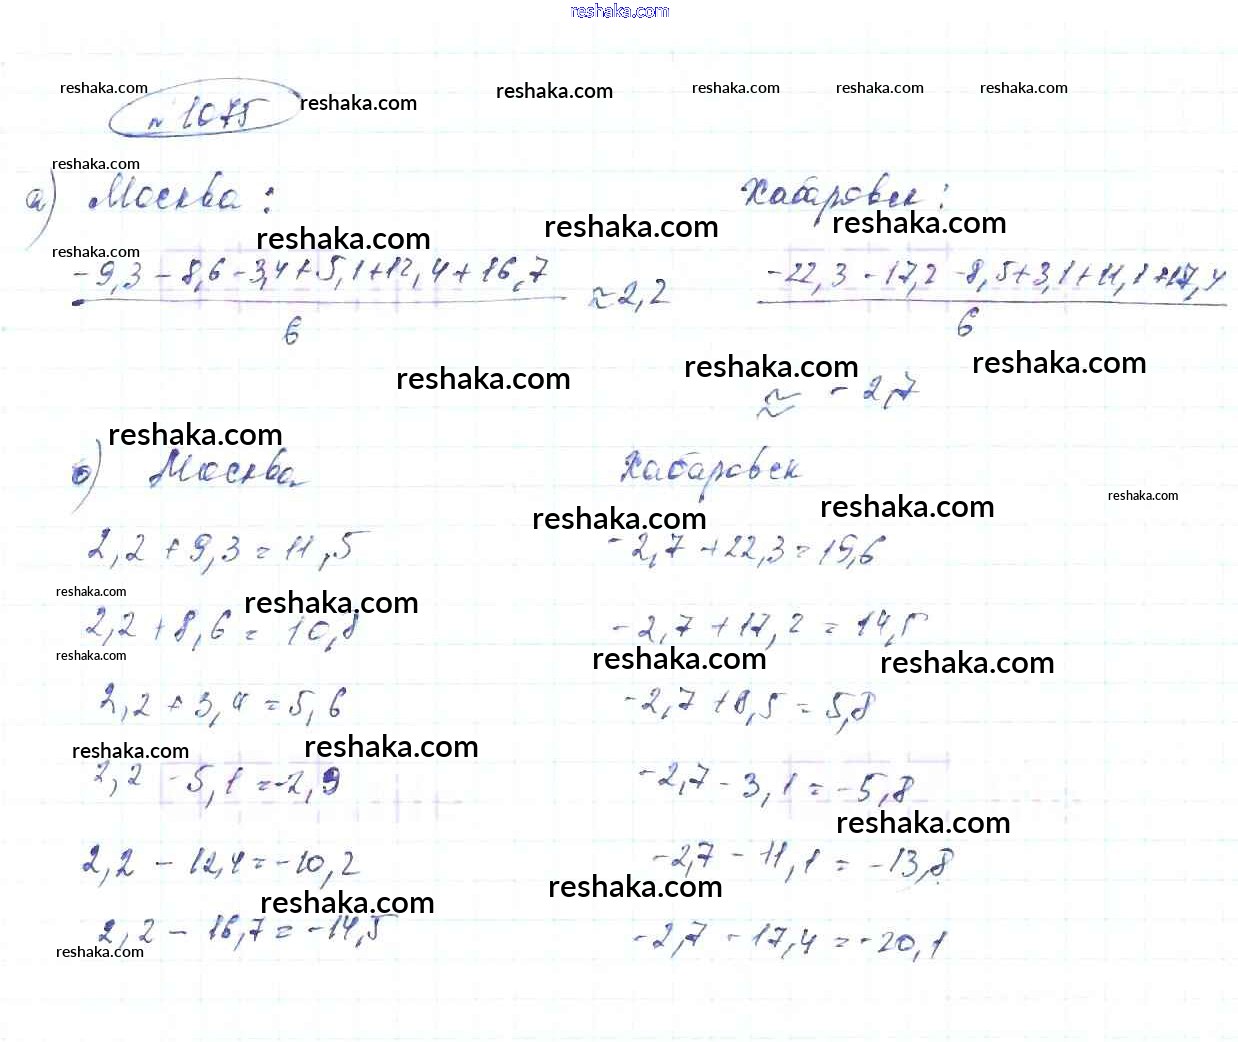 reshaka.com
reshaka.com reshaka.com reshaka.com reshaka.com reshaka.com
№ 1075 reshaka.com
reshaka.com
а) Москва: Хабаровск:
reshaka.com reshaka.com reshaka.com
reshaka.com
-9,3 - 8,6 - 3,4 + 5,1 + 12,4 + 16,7 ≈ 2,2 -22,3 - 17,2 - 8,5 + 3,1 + 11,1 + 17,4
6 6
reshaka.com reshaka.com reshaka.com
≈ -2,7
reshaka.com
б) Москва Хабаровск
reshaka.com reshaka.com reshaka.com
2,2 + 9,3 = 11,5 -2,7 + 22,3 = 19,6
reshaka.com reshaka.com
2,2 + 8,6 = 10,8 -2,7 + 17,2 = 14,5
reshaka.com reshaka.com reshaka.com
2,2 + 3,4 = 5,6 -2,7 + 8,5 = 5,8
reshaka.com reshaka.com
2,2 - 5,1 = -2,9 -2,7 - 3,1 = -5,8
reshaka.com
2,2 - 12,4 = -10,2 -2,7 - 11,1 = -13,8
reshaka.com reshaka.com
2,2 - 16,7 = -14,5 -2,7 - 17,4 = -20,1
reshaka.com